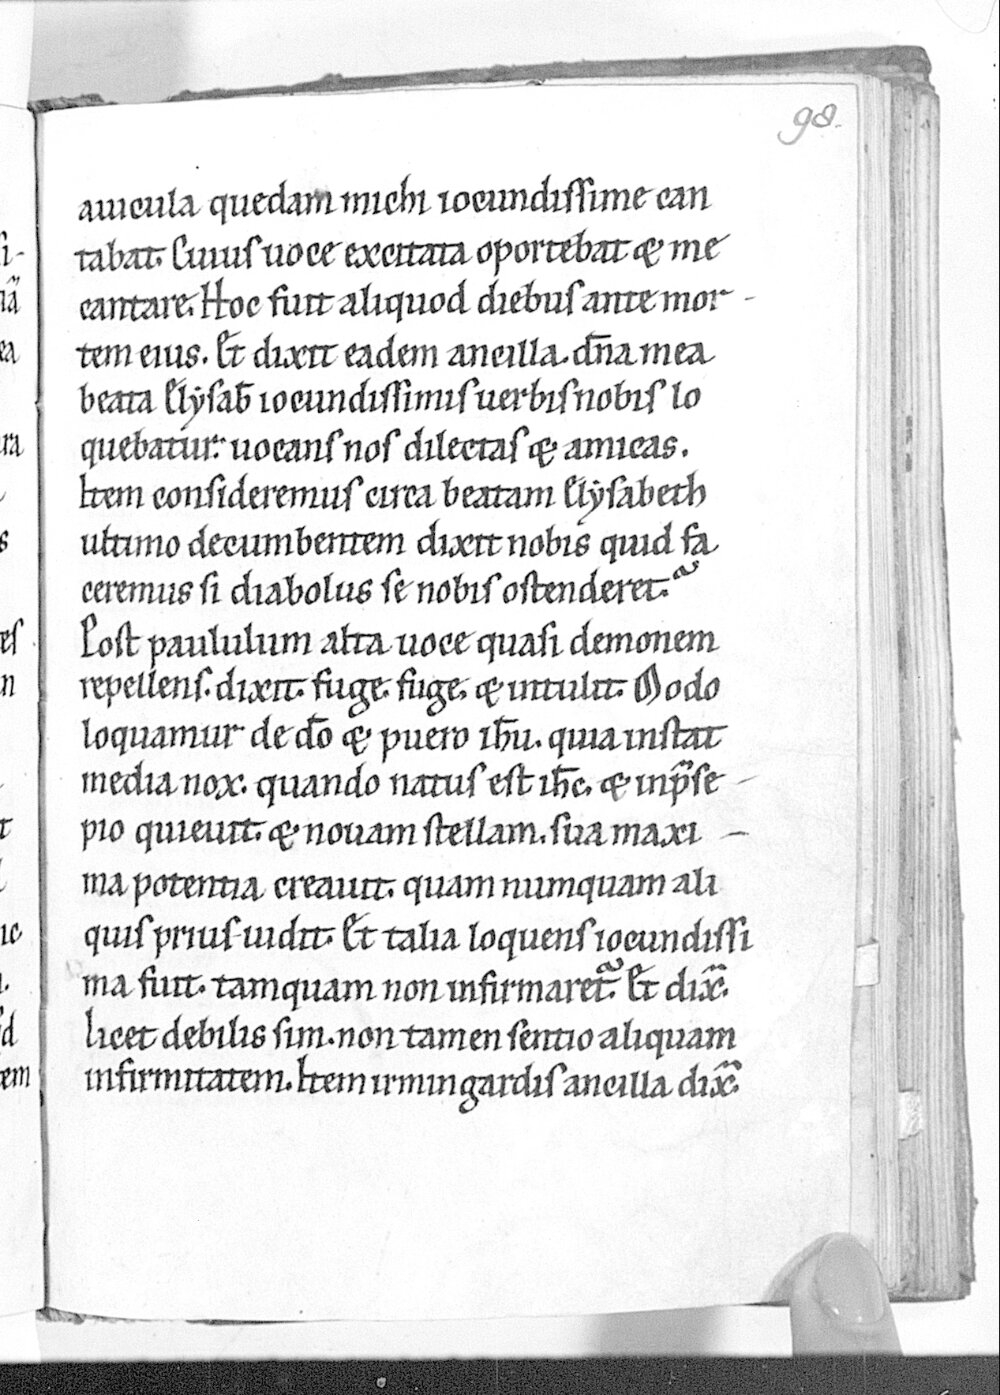 98.
auicula quedam michi iocundissime can
tabat. Cuius uoce excitata oportebat & me
cantare. Hoc fuit aliquod diebus ante mor-
tem eius. Et dixit eadem ancilla. dn̄a mea
beata Elẏsab̄ iocundissimis uerbis nobis lo
quebatur. uocans nos dilectas & amicas.
Item consideremus circa beatam Elẏsabeth
ultimo decumbentem dixit nobis quid fa
ceremus si diabolus se nobis ostenderet.
Post paululum alta uoce quasi demonem
repellens. dixit. fuge. fuge. & intulit. Modo
loquamur de dō & puero ihū. quia instat
media nox. quando natus est ihc̄. & inp̄se-
pio quieuit. & nouam stellam. sua maxi-
ma potentia creauit. quam numquam ali
quis prius uidit. Et talia loquens iocundissi
ma fuit. tamquam non infirmaret. Et dix̄.
licet debilis sim. non tamen sentio aliquam
infirmitatem. Item irmingardis ancilla dix̄.